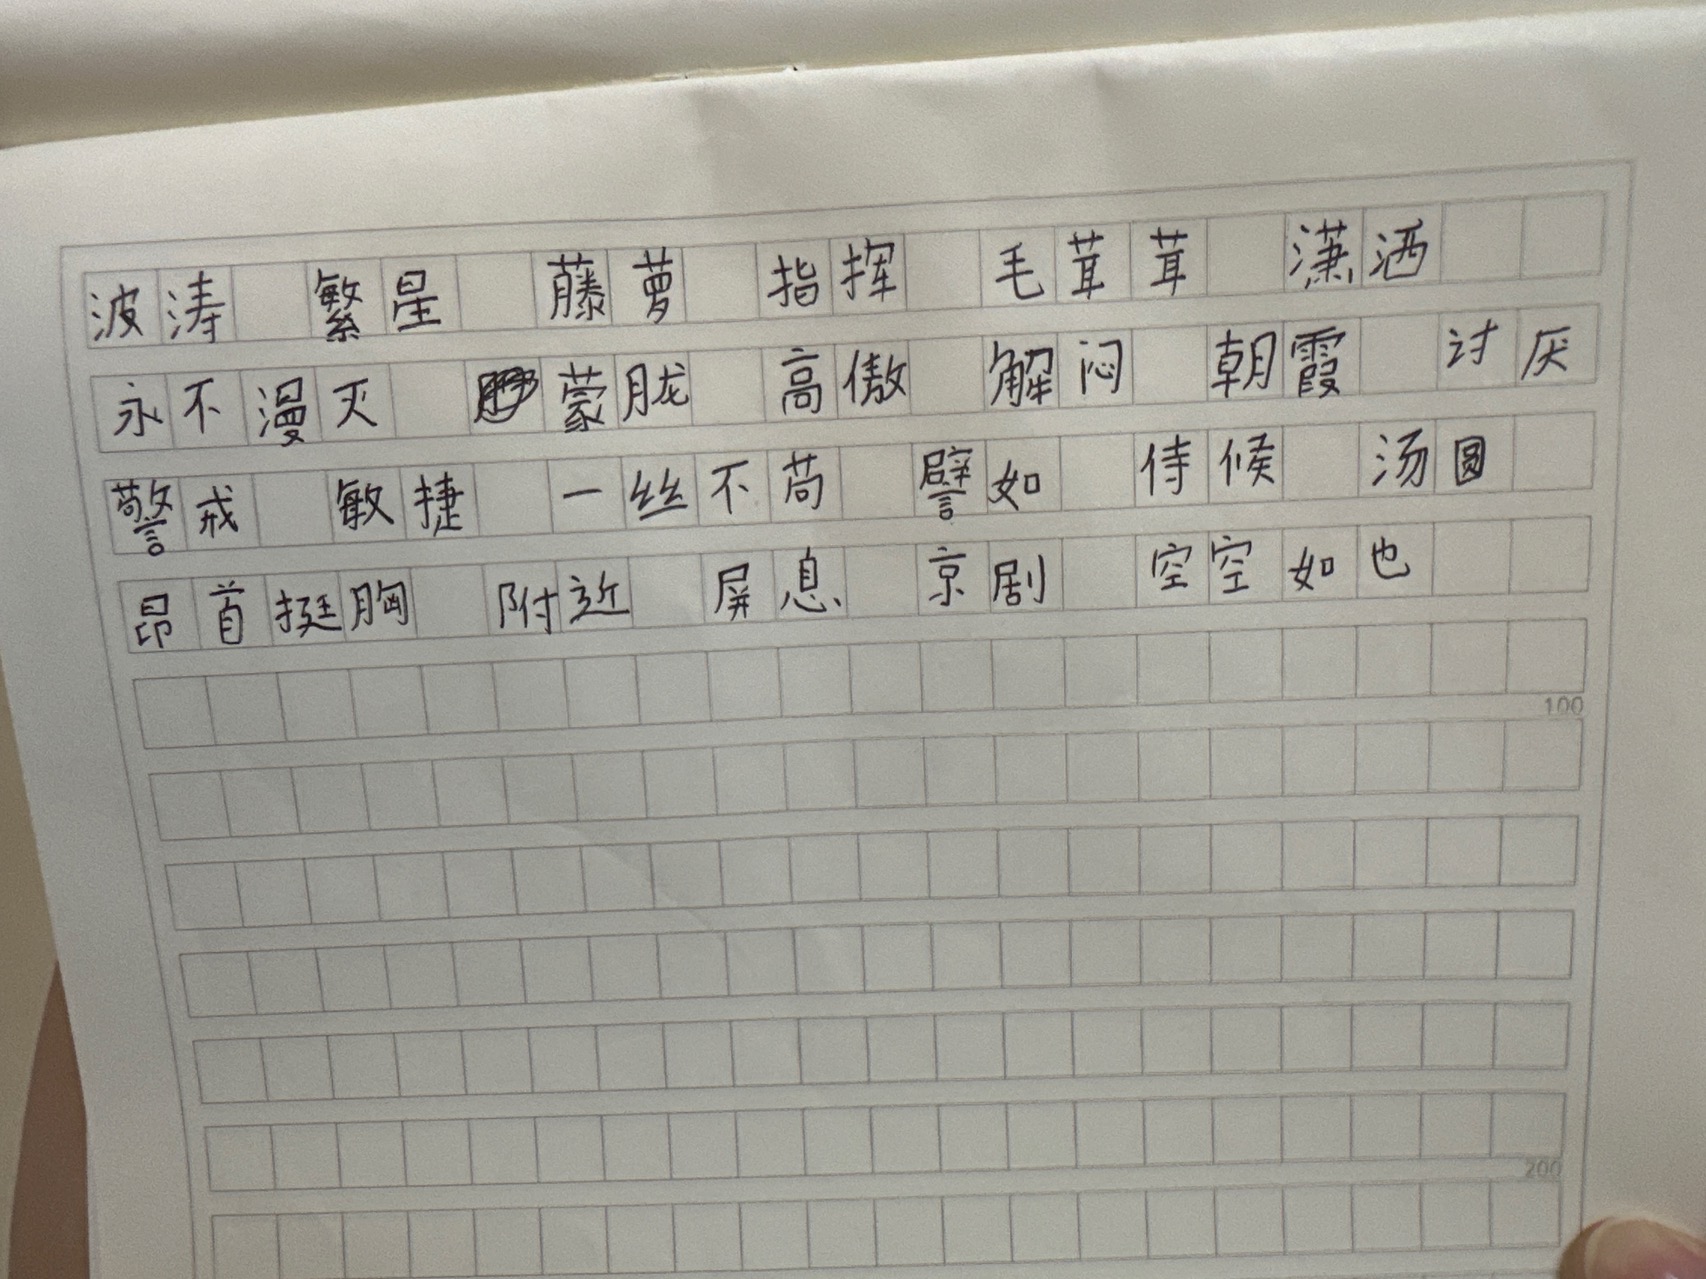 波涛 繁星 藤萝 指挥 毛茸茸 潇洒
永不漫灭 蒙胧 高傲 解闷 朝霞 讨厌
警戒 敏捷 一丝不苟 譬如 侍候 汤圆
昂首挺胸 附近 屏息 京剧 空空如也
100
200